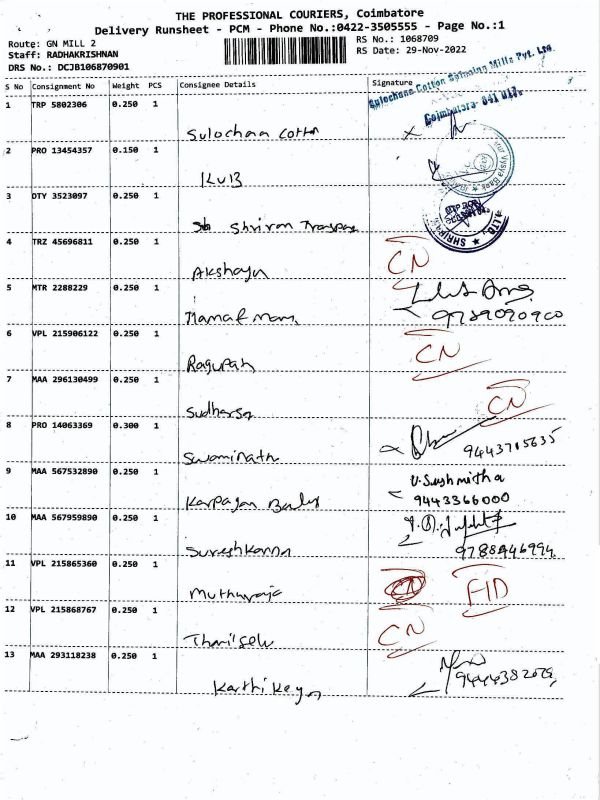 THE PROFESSIONAL COURIERS, Coimbatore
Delivery Runsheet - PCM - Phone No.:0422-3505555 - Page No.:1
Route: GN MILL 2
RS No.: 1068709
Staff: RADHAKRISHNAN
RS Date: 29-Nov-2022
DRS No.: DCJB106870901
S No Consignment No Weight PCS Consignee Details Signature
Sulochana Cotton Spinning Mills Pvt. Ltd.
Coimbatore- 641 017.
1 TRP 5802306 0.250 1
Sulochaa Cotton
2 PRO 13454357 0.150 1
KVB
Vysya Bank
3 DTY 3523097 0.250 1
Shriram
SHRIRAM
LTD.
4 TRZ 45696811 0.250 1
Akshaya CN
5 MTR 2288229 0.250 1
9789090900
6 VPL 215906122 0.250 1
Ragupath CN
7 MAA 296130499 0.250 1
Sudharsa CN
8 PRO 14063369 0.300 1
Swaminath 9443715635
9 MAA 567532890 0.250 1
V. Sushmitha
Karpagam 9443366000
10 MAA 567959890 0.250 1
Sureshkanna 9788446994
11 VPL 215865360 0.250 1
Muthuraja CN FID
12 VPL 215868767 0.250 1
Thamilselv CN
13 MAA 293118238 0.250 1
Karthikeyn